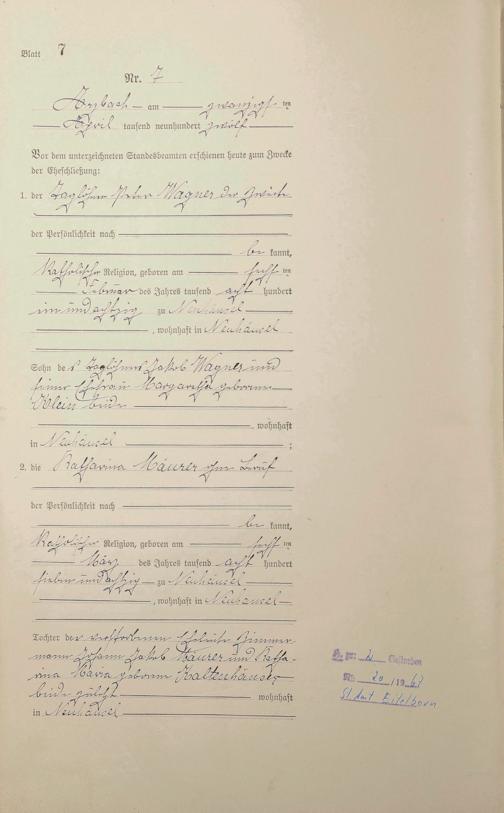 Blatt 7
Nr. 7
Arzbach am zwanzigsten
April tausend neunhundert zwölf
Vor dem unterzeichneten Standesbeamten erschienen heute zum Zwecke
der Eheschließung:
1. der Taglöhner Peter Wagner der Zweite
der Persönlichkeit nach
be kannt,
katholischer Religion, geboren am sechsten
Februar des Jahres tausend acht hundert
einundachtzig zu Neuhäusel
, wohnhaft in Neuhäusel
Sohn des Taglöhners Jakob Wagner und
seiner Ehefrau Margaretha geborene
Klein beide
, wohnhaft
in Neuhäusel ;
2. die Katharina Maurer ohne Beruf
der Persönlichkeit nach
be kannt,
katholischer Religion, geboren am sechsten
März des Jahres tausend acht hundert
siebenundachtzig zu Neuhäusel
, wohnhaft in Neuhäusel
Tochter der verstorbenen Eheleute Zimmer-
mann Johann Jakob Maurer und Katha-
rina Maria geborene Kaltenhäuser
beide zuletzt wohnhaft
in Neuhäusel
zu 2 Gestorben
Nr. 20/1967
St.Amt Eitelborn